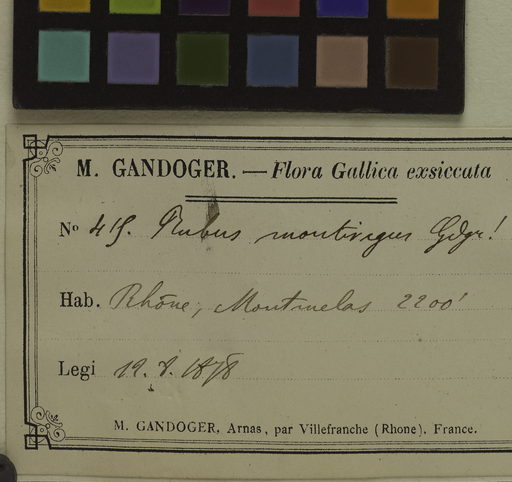 M. GANDOGER. — Flora Gallica exsiccata
No 415. Rubus montivagus Gdgr!
Hab. Rhône, Montmelas 2200'
Legi 19. 8. 1878
M. GANDOGER, Arnas, par Villefranche (Rhone), France.